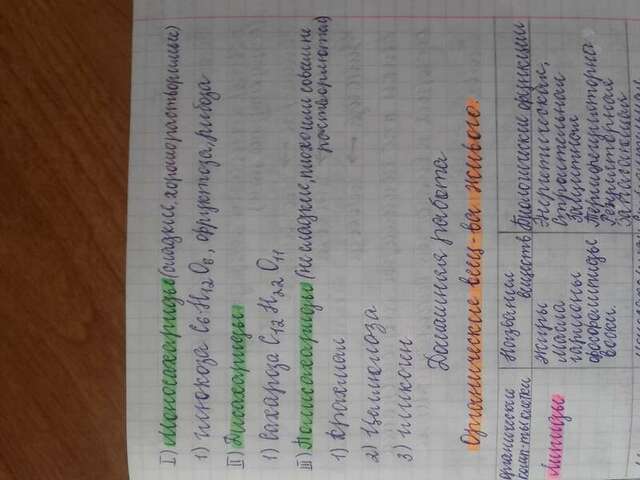 I) Моносахариды (сладкие, хорошо растворимые)
1) глюкоза C6H12O6, фруктоза, рибоза
II) Дисахариды
1) Сахароза C12H22O11
III) Полисахариды (не сладкие, плохо или совсем не
растворяются)
1) Крахмал
2) Целлюлоза
3) гликоген
Домашняя работа
Органические вещ-ва живого.
Органические комп-ты клетки
Название веществ
Биологические функции
Липиды
Жиры
Масла
гармоны
фосфолипиды
воски.
Энергетическая,
Строительная
Защитная
Терморегуляторна
Регуляторная
Запасающая